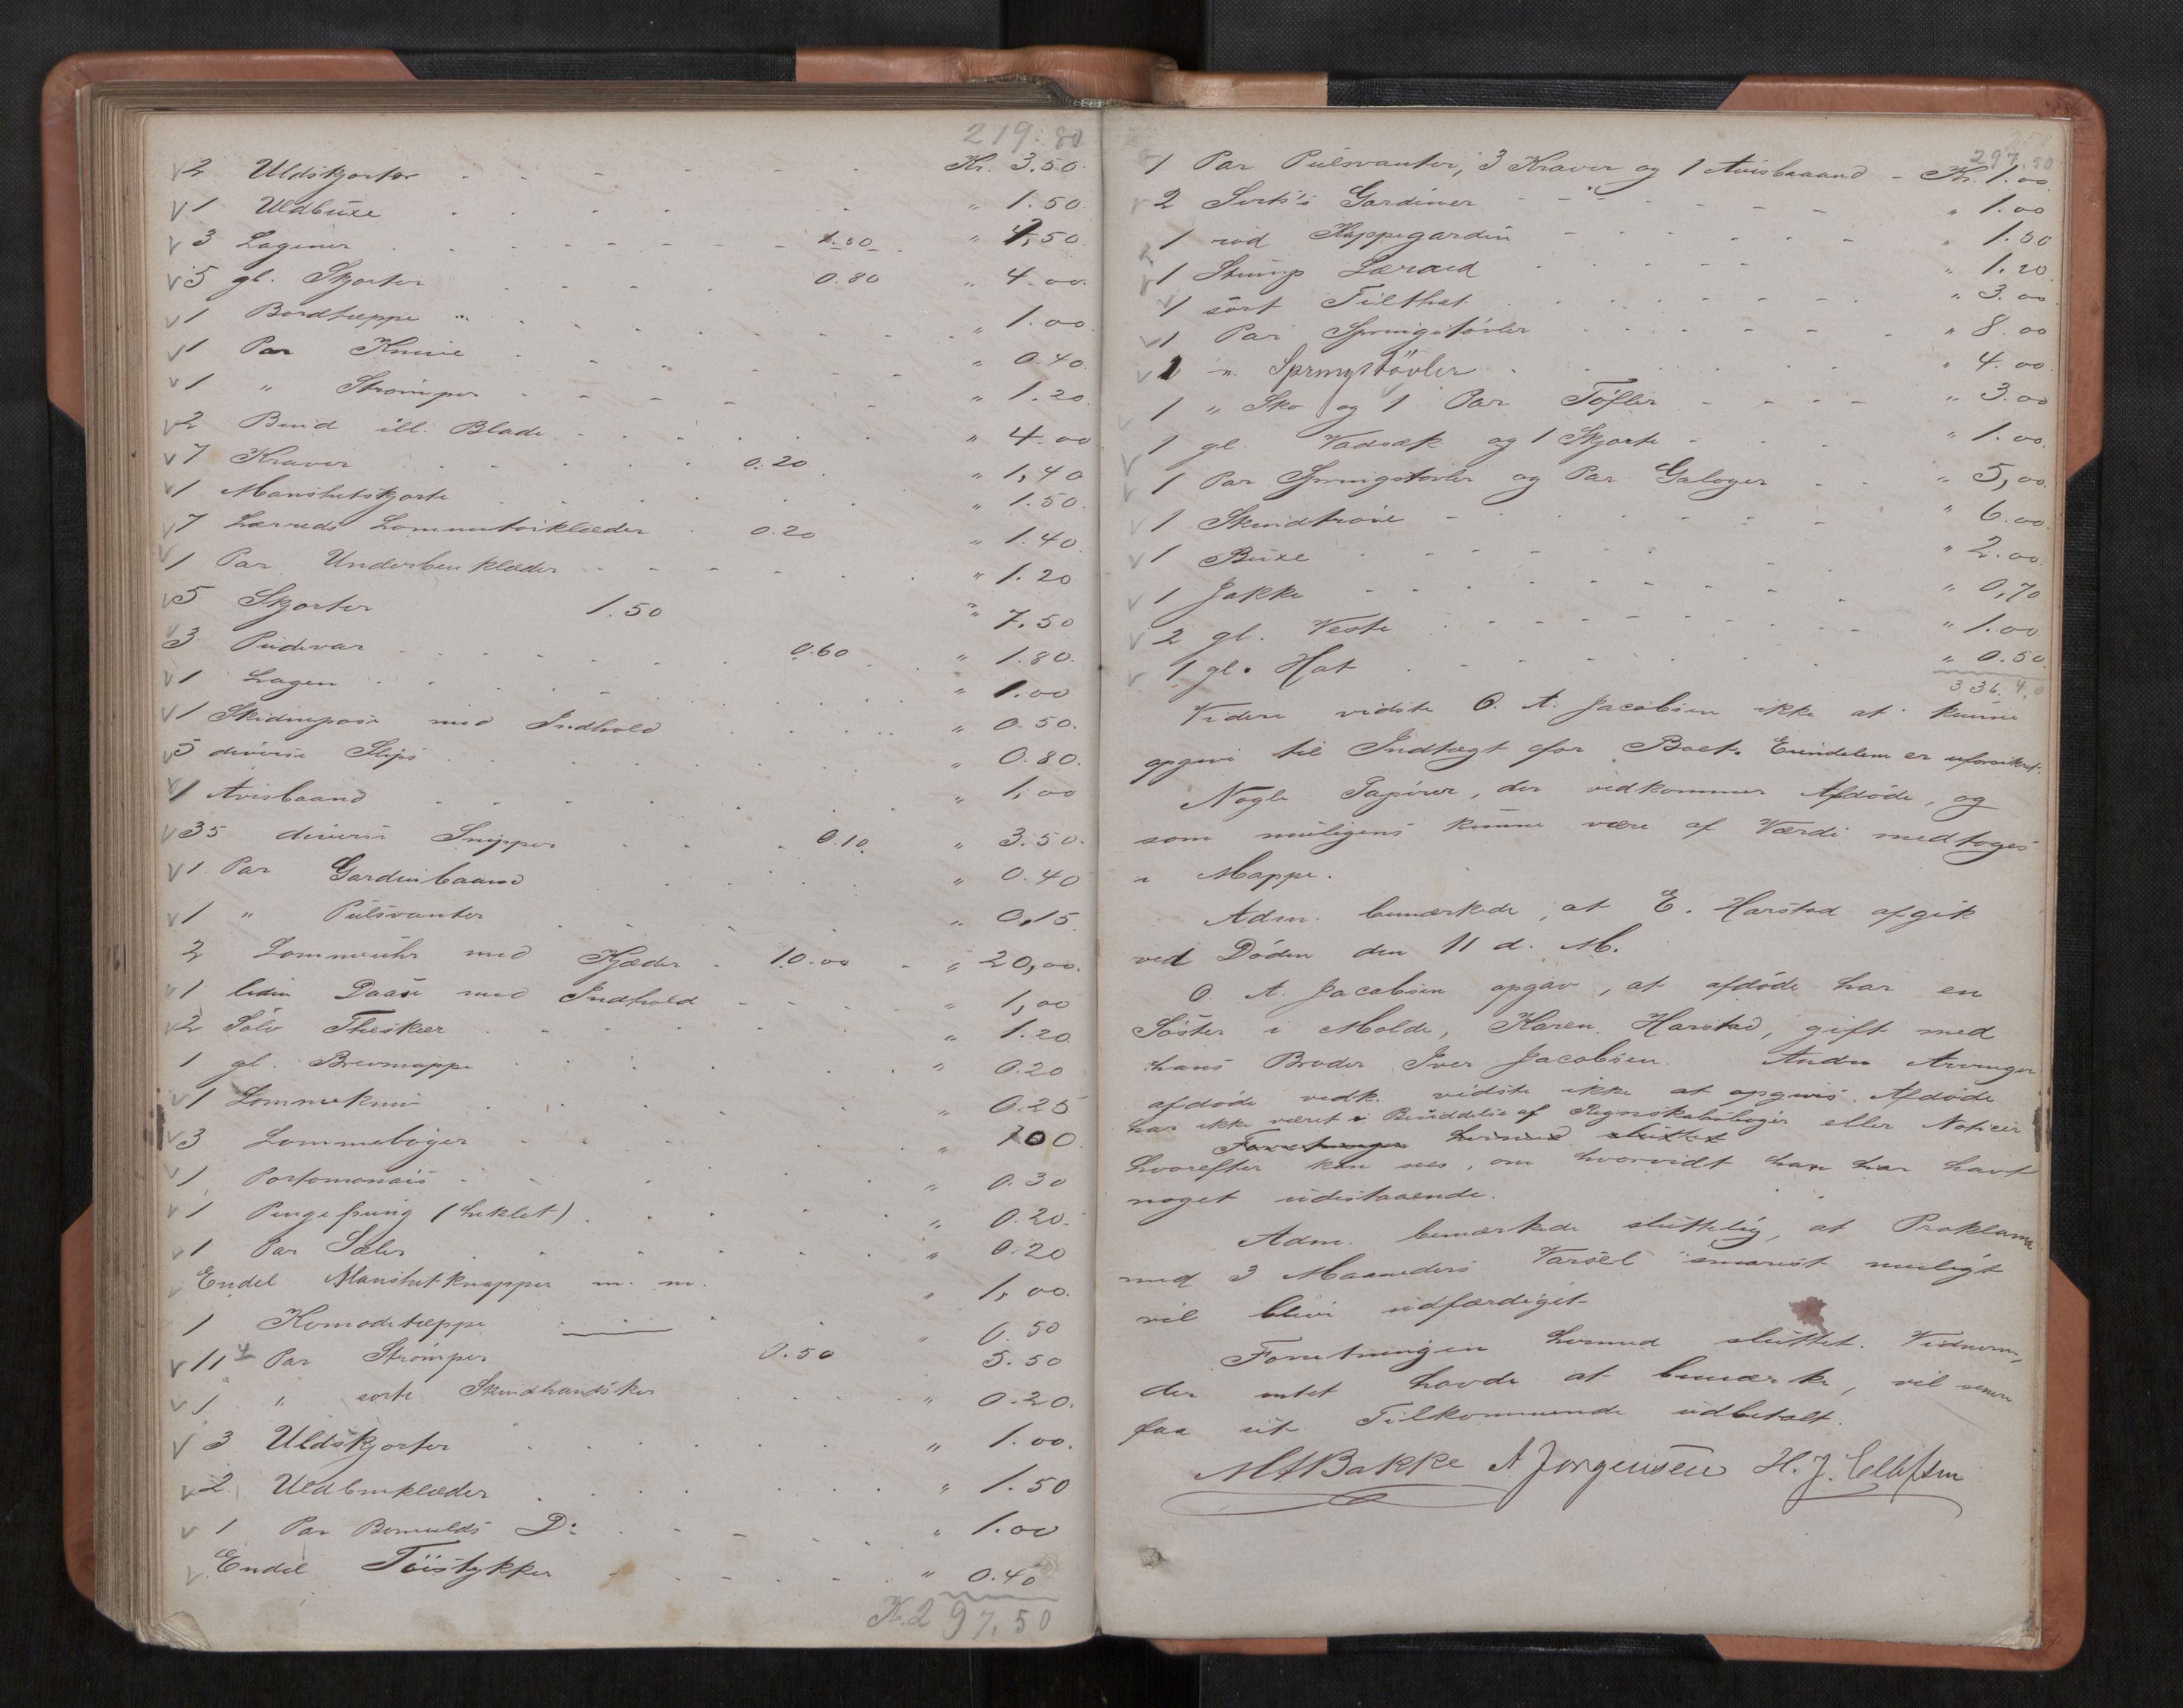 219.80
2 Uldskjorter Kr. 3.50
1 Uldbuxe " 1.50
3 Lagener 1.50 " 4,50
5 gl. Skjorter 0.80 " 4.00
1 Bordtæppe " 1.00
1 Par Knive " 0.40
1 " Strömper " 1.20
2 Bind ill. Blade " 4.00
7 Kraver 0.20 " 1,40
1 Manshetskjorte " 1.50
7 Lærreds Lommetörklæder 0.20 " 1.40
1 Par Underbenklæder " 1.20
5 Skjorter 1.50 " 7.50
3 Pudevar 0.60 " 1.80
1 Lagen " 1.00
1 Skidenpose med Indhold " 0.50
5 diverse Slips " 0.80
1 Avisbaand " 1,00
35 diverse Snipper 0.10 " 3.50
1 Par Gardinbaand " 0.40
1 " Pulsvanter " 0,15
2 Lommeuhr med Kjæder 10.00 " 20,00
1 liden Daase med Indhold " 1,00
2 Sölv Theskeer " 1.20
1 gl. Brevmappe " 0.20
1 Lommekniv " 0.25
3 Lommeböger " 100
1 Portomonais " 0.30
1 Pengepung (heklet) " 0.20
1 Par Sæler " 0.20
Endel Manshetknapper m. m. " 1,00
1 Komodetæppe " 0.50
11 Par Strömper 0.50 5.50
1 " sorte Skindhandsker " 0.20
3 Uldskjorter " 1.00
2 Uldbenklæder " 1.50
1 Par Bomulds Do " 1.00
Endel Töistykker " 0.40
Kr. 297,50
297.50
1 Par Pulsvanter, 3 Kraver og 1 Avisbaaand - Kr. 1.00
2 Gardiner " 1.00
1 röd Kappegardin " 1.50
1 Stump Læraed " 1.20
1 sort Filthat " 3.00
1 Par Springstövler " 8.00
1 " Springstövler " 4.00
1 " Sko og 1 Par Töfler " 3.00
1 gl. Vadsæk og 1 Skjorte " 1.00
1 Par Springstövler og Par Galoger " 5,00
1 Skindtröie " 6.00
1 Buxe " 2.00
1 Jakke " 0,70
2 gl. Veste " 1.00
1 gl. Hat " 0.50
336.40
Videre vidste O. A. Jacobsen ikke at kunne
opgive til Indtægt for Boet. Eiendelene er uforsikret.
Nogle Papirer, der vedkommer Afdöde, og
som muligens kunne være af Værdi medtoges
i Mappe.
Adm. bemærkede, at E. Harstad afgik
ved Döden den 11 d. M.
O. A. Jacobsen opgav, at afdöde har en
Söster i Molde, Karen Harstad, gift med
hans Broder Iver Jacobsen. Andre Arvinger
afdöde vedk. vidste ikke at opgives. Afdöde
har ikke været i Besiddelse af Regnskabsböger eller Noticer
Forretningen hermed sluttet
hvorefter kan sees, om hvorvidt han har havt
noget udestaaende.
Adm. bemærkede sluttelig, at Proklama
med 3 Maaneders Varsel snarest muligt
vil blive udfærdiget.
Forretningen hermed sluttet. Vidnerne,
der intet havde at bemærke, vil senere
faa sit Tilkommende udbetalt.
MABakke A Jörgensen H. J. Ellefsen